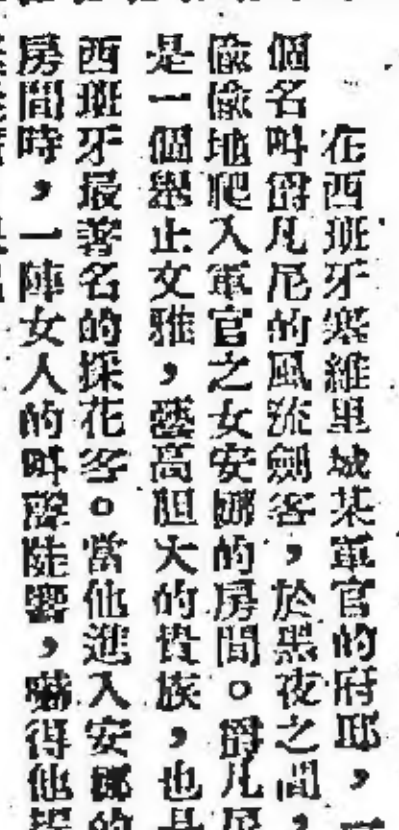 在西班牙塞維里城某軍官的府邸，
個名叫爵凡尼的風流劍客，於黑夜之間，
偸偸地爬入軍官之女安娜的房間。爵凡尼
是一個舉止文雅，藝高胆大的貴族，也是
西班牙最著名的採花客。當他進入安娜的
房間時，一陣女人的叫聲陡響，嚇得他